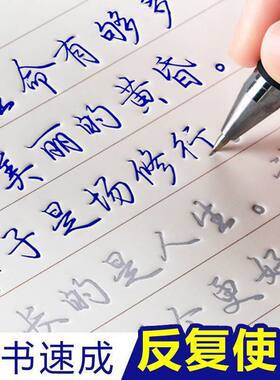 命有够多
美丽的黄昏。
子是场修行
长的是人生。
更好
书速成
反复使